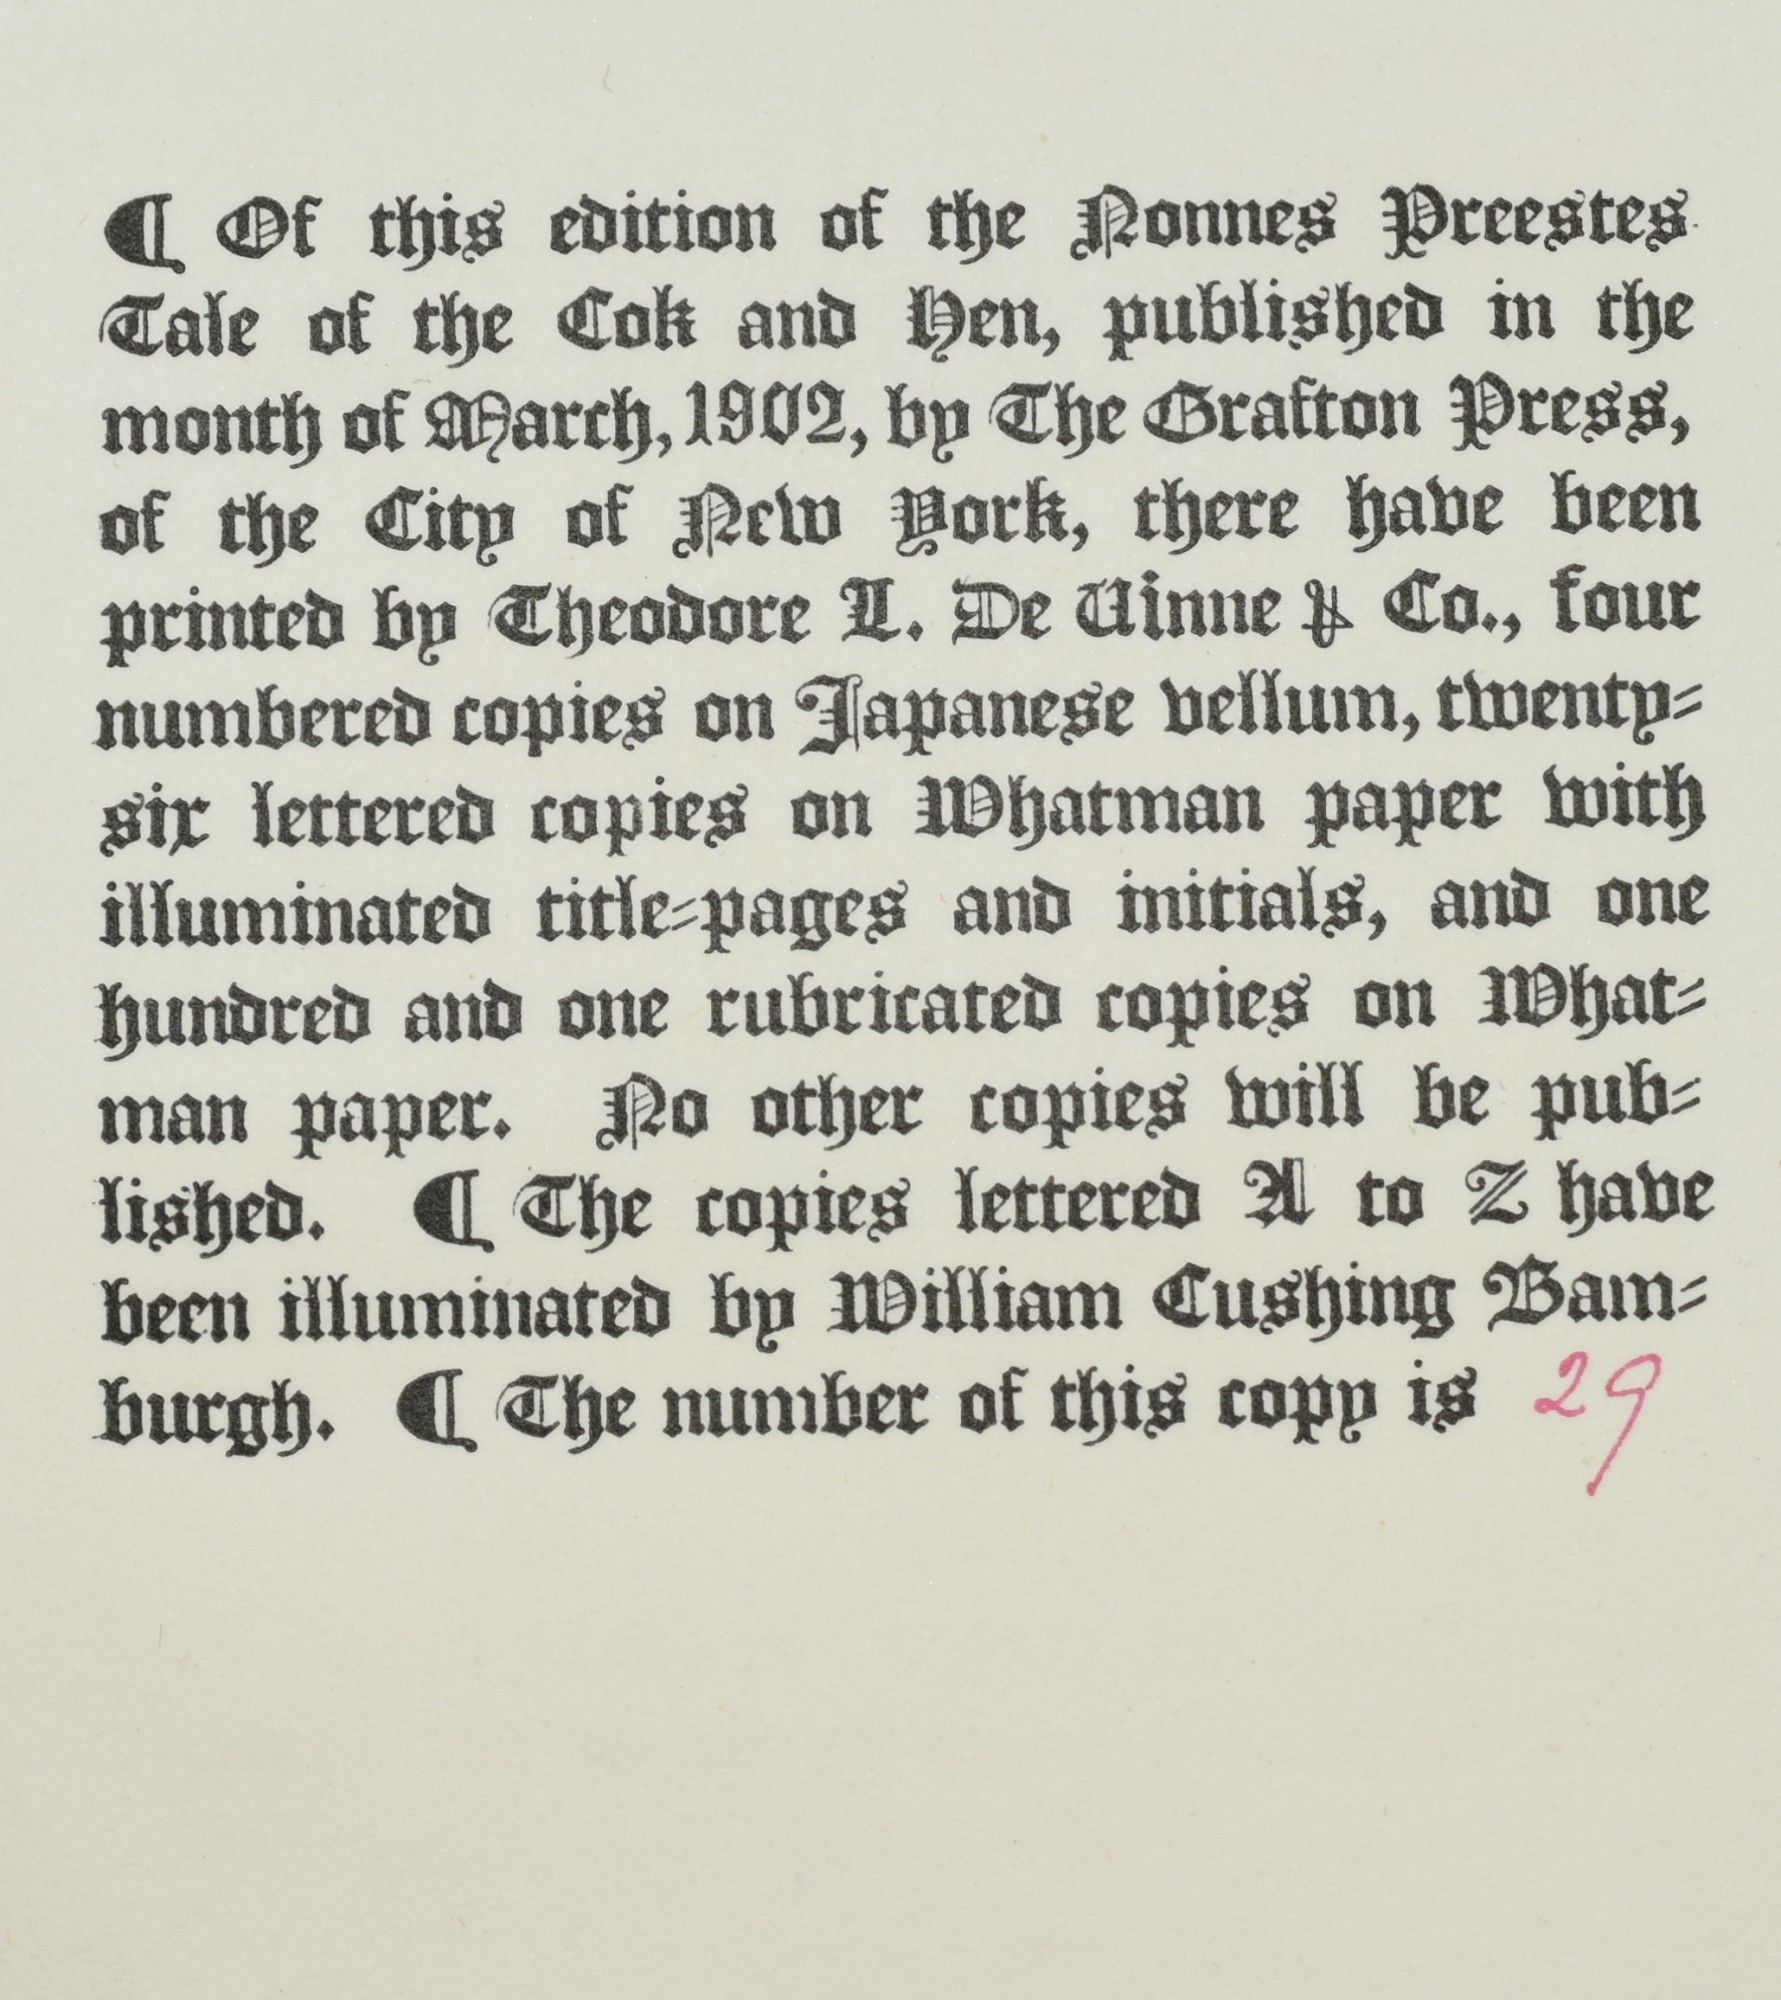 ¶ Of this edition of the Nonnes Preestes
Tale of the Cok and Hen, published in the
month of March, 1902, by The Grafton Press,
of the City of New York, there have been
printed by Theodore L. De Vinne & Co., four
numbered copies on Japanese vellum, twenty-
six lettered copies on Whatman paper with
illuminated title-pages and initials, and one
hundred and one rubricated copies on What-
man paper. No other copies will be pub-
lished. ¶ The copies lettered A to Z have
been illuminated by William Cushing Bam-
burgh. ¶ The number of this copy is 29